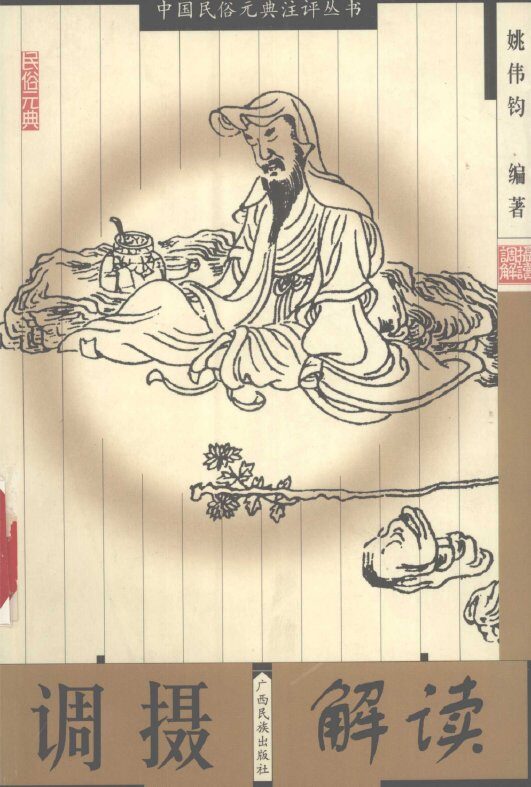 中国民俗元典注评丛书
民俗元典
姚伟钧 编著
调摄解读
调摄
广西民族出版社
解读